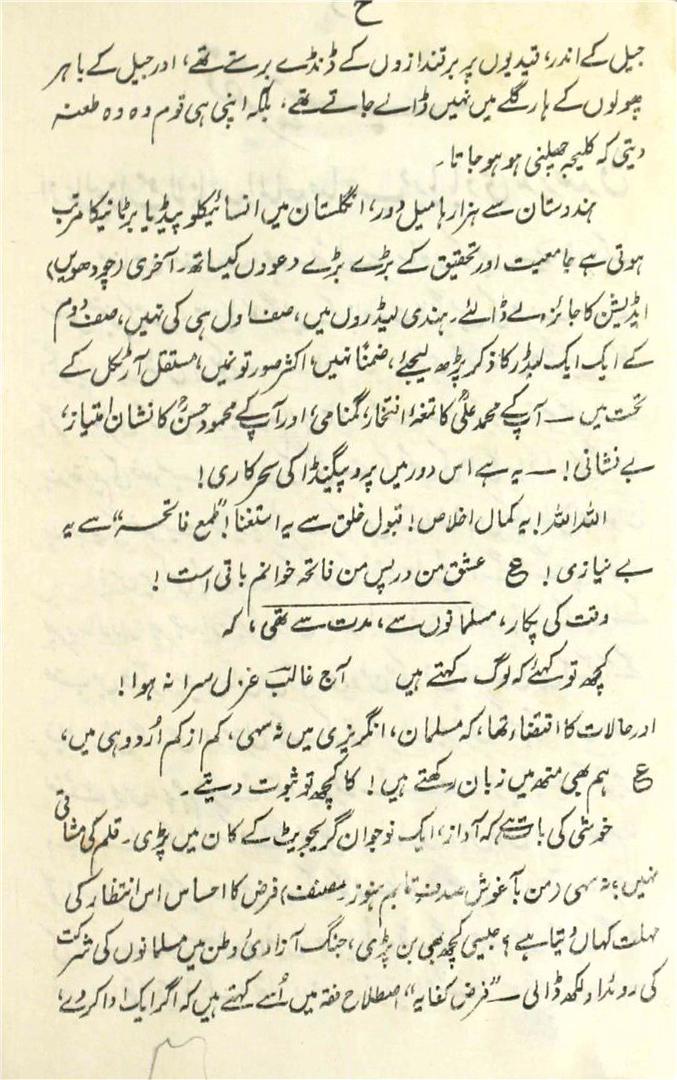 ح
جیل کے اندر، قیدیوں پر برقندازوں کے ڈنڈے برستے تھے، اور جیل کے باہر
پھولوں کے ہار گلے میں نہیں ڈالے جاتے تھے، بلکہ اپنی ہی قوم وہ وہ طعنہ
دیتی کہ کلیجہ چھلنی ہو ہو جاتا۔
ہندستان سے ہزارہا میل دور، انگلستان میں انسائیکلوپیڈیا برٹانیکا مرتب
ہوتی ہے جامعیت اور تحقیق کے بڑے بڑے دعووں کیساتھ۔ آخری (چودھویں)
ایڈیشن کا جائزہ لے ڈالئے۔ ہندی لیڈروں میں، صف اول ہی کی نہیں، صف دوم
کے ایک ایک لیڈر کا ذکر پڑھ لیجئے، ضمناً نہیں، اکثر صورتونمیں، مستقل آرٹکل کے
تحت میں — آپ کے محمد علیؒ کا تمغۂ افتخار، گمنامی، اور آپ کے محمود حسنؒ کا نشان امتیاز،
بے نشانی! — یہ ہے اس دور میں پروپیگنڈا کی سحرکاری!
اللہ اللہ! یہ کمال اخلاص! قبول خلق سے یہ استغنا! "طمع فاتحہ" سے یہ
بے نیازی! ع عشق من در پس من فاتحہ خوانم باقی است!
وقت کی پکار، مسلمانوں سے، مدت سے تھی، کہ
کچھ تو کہئے کہ لوگ کہتے ہیں آج غالبؔ غزل سرا نہ ہوا!
اور حالات کا اقتضاء تھا، کہ مسلمان، انگریزی میں نہ سہی، کم از کم اُردو ہی میں،
ع ہم بھی منھ میں زبان رکھتے ہیں! کا کچھ تو ثبوت دیتے۔
خوشی کی بات ہے کہ آواز، ایک نوجوان گریجویٹ کے کان میں پڑی۔ قلم کی مشاقی
نہیں، نہ سہی (من بآغوش ہنوز مصنف) فرض کا احساس اس انتظار کی
مہلت کہاں دیتا ہے؟ جیسی کچھ بھی بن پڑی، جنگ آزادئ وطن میں مسلمانوں کی شرکت
کی روئداد لکھ ڈالی — "فرض کفایہ"، اصطلاح فقہ میں اُسے کہتے ہیں کہ اگر ایک ادا کر دے،